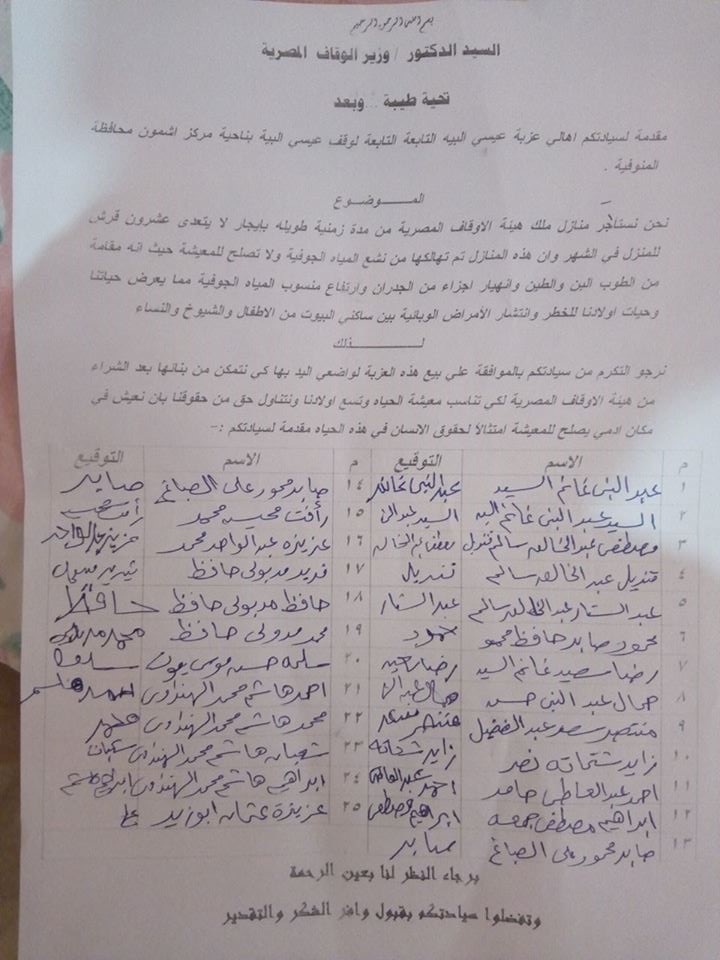 بسم الله الرحمن الرحيم
السيد الدكتور / وزير الوقاف المصرية
تحية طيبة ... وبعد
مقدمة لسيادتكم اهالي عزبة عيسي البيه التابعة التابعة لوقف عيسي البية بناحية مركز اشمون محافظة
المنوفية .
الموضوع
نحن نستأجر منازل ملك هيئة الاوقاف المصرية من مدة زمنية طويله بإيجار لا يتعدى عشرون قرش
للمنزل في الشهر وان هذه المنازل تم تهالكها من نشع المياه الجوفية ولا تصلح للمعيشة حيث انه مقامة
من الطوب البن والطين وانهيار اجزاء من الجدران وارتفاع منسوب المياه الجوفية مما يعرض حياتنا
وحيات اولادنا للخطر وانتشار الأمراض الوبائية بين ساكني البيوت من الاطفال والشيوخ والنساء
لذلك
نرجو التكرم من سيادتكم بالموافقة علي بيع هذه العزبة لواضعي اليد بها كي نتمكن من بنائها بعد الشراء
من هيئة الاوقاف المصرية لكي تناسب معيشة الحياه وتسع اولادنا ونتناول حق من حقوقنا بان نعيش في
مكان ادمي يصلح للمعيشة امتثالاً لحقوق الانسان في هذه الحياه مقدمة لسيادتكم :-
م الاسم التوقيع م الاسم التوقيع
١ عبد النبى غانم السيد ١٤ صابد محمود على الصباغ صابر
٢ السيد عبد النبى غانم السيد ١٥ رأفت محيسن محمد
٣ مصطفى عبد الخالق سالم قنديل ١٦ عزيزه عبد الواحد محمد
٤ قنديل عبد الخالق سالم قنديل ١٧ فريد مدبولى حافظ
٥ عبد الستار عبد الخالق سالم عبد الستار ١٨ حافظ مدبولى حافظ حافظ
٦ محمود صابد حافظ محمود ١٩ محمد مدبولى حافظ
٧ رضا سعيد غانم السيد ٢٠ سلمه حسن موسى
٨ جمال عبد النبى حسن ٢١ احمد هاشم محمد الهنداوى احمد هاشم
٩ منتصر سعد عبد الفضيل ٢٢ محمد هاشم محمد الهنداوى محمد
١٠ زايد شحاته نصر زايد شحاته ٢٣ شعبان هاشم محمد الهنداوى شعبان
١١ احمد عبد العاطى حامد احمد عبد العاطى ٢٤ ابراهيم هاشم محمد الهنداوى ابراهيم هاشم
١٢ ابراهيم مصطفى جمعه ابراهيم مصطفى ٢٥ عزيزة عثمان ابوزيد
١٣ صابد محمود على الصباغ صابر
برجاء النظر لنا بعين الرحمة
وتفضلوا سيادتكم بقبول وافر الشكر والتقدير